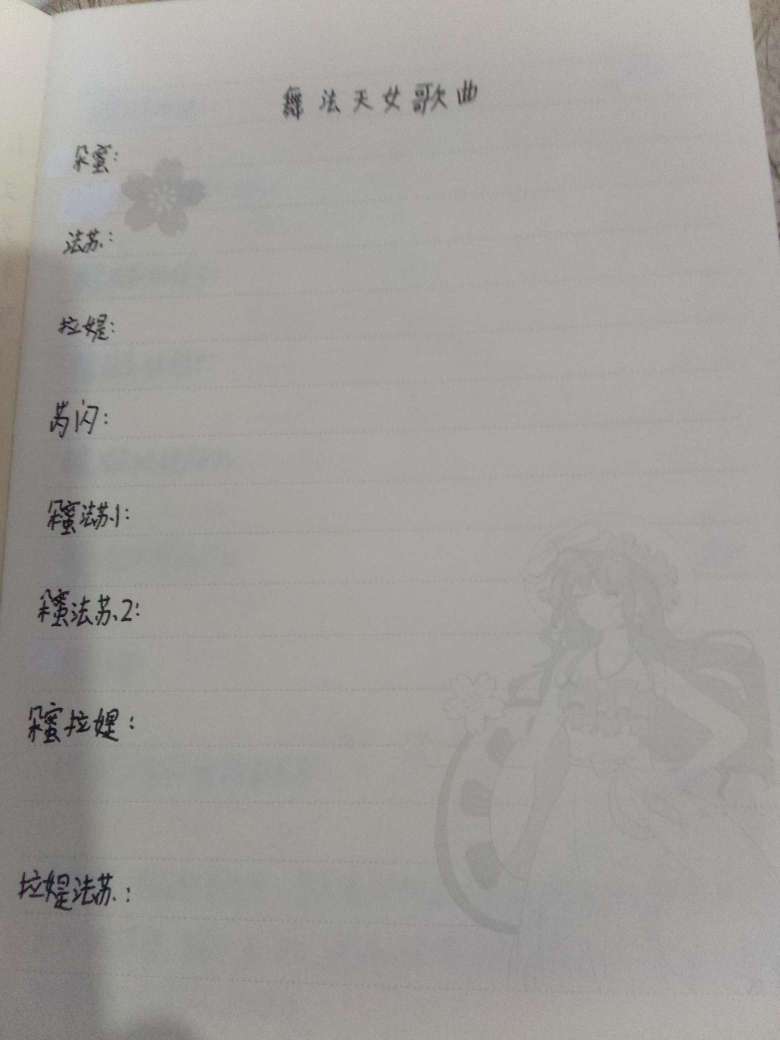 舞法天女歌曲
朵蜜:
法苏:
拉媞:
芮闪:
朵蜜法苏1:
朵蜜法苏2:
朵蜜拉媞:
拉媞法苏: